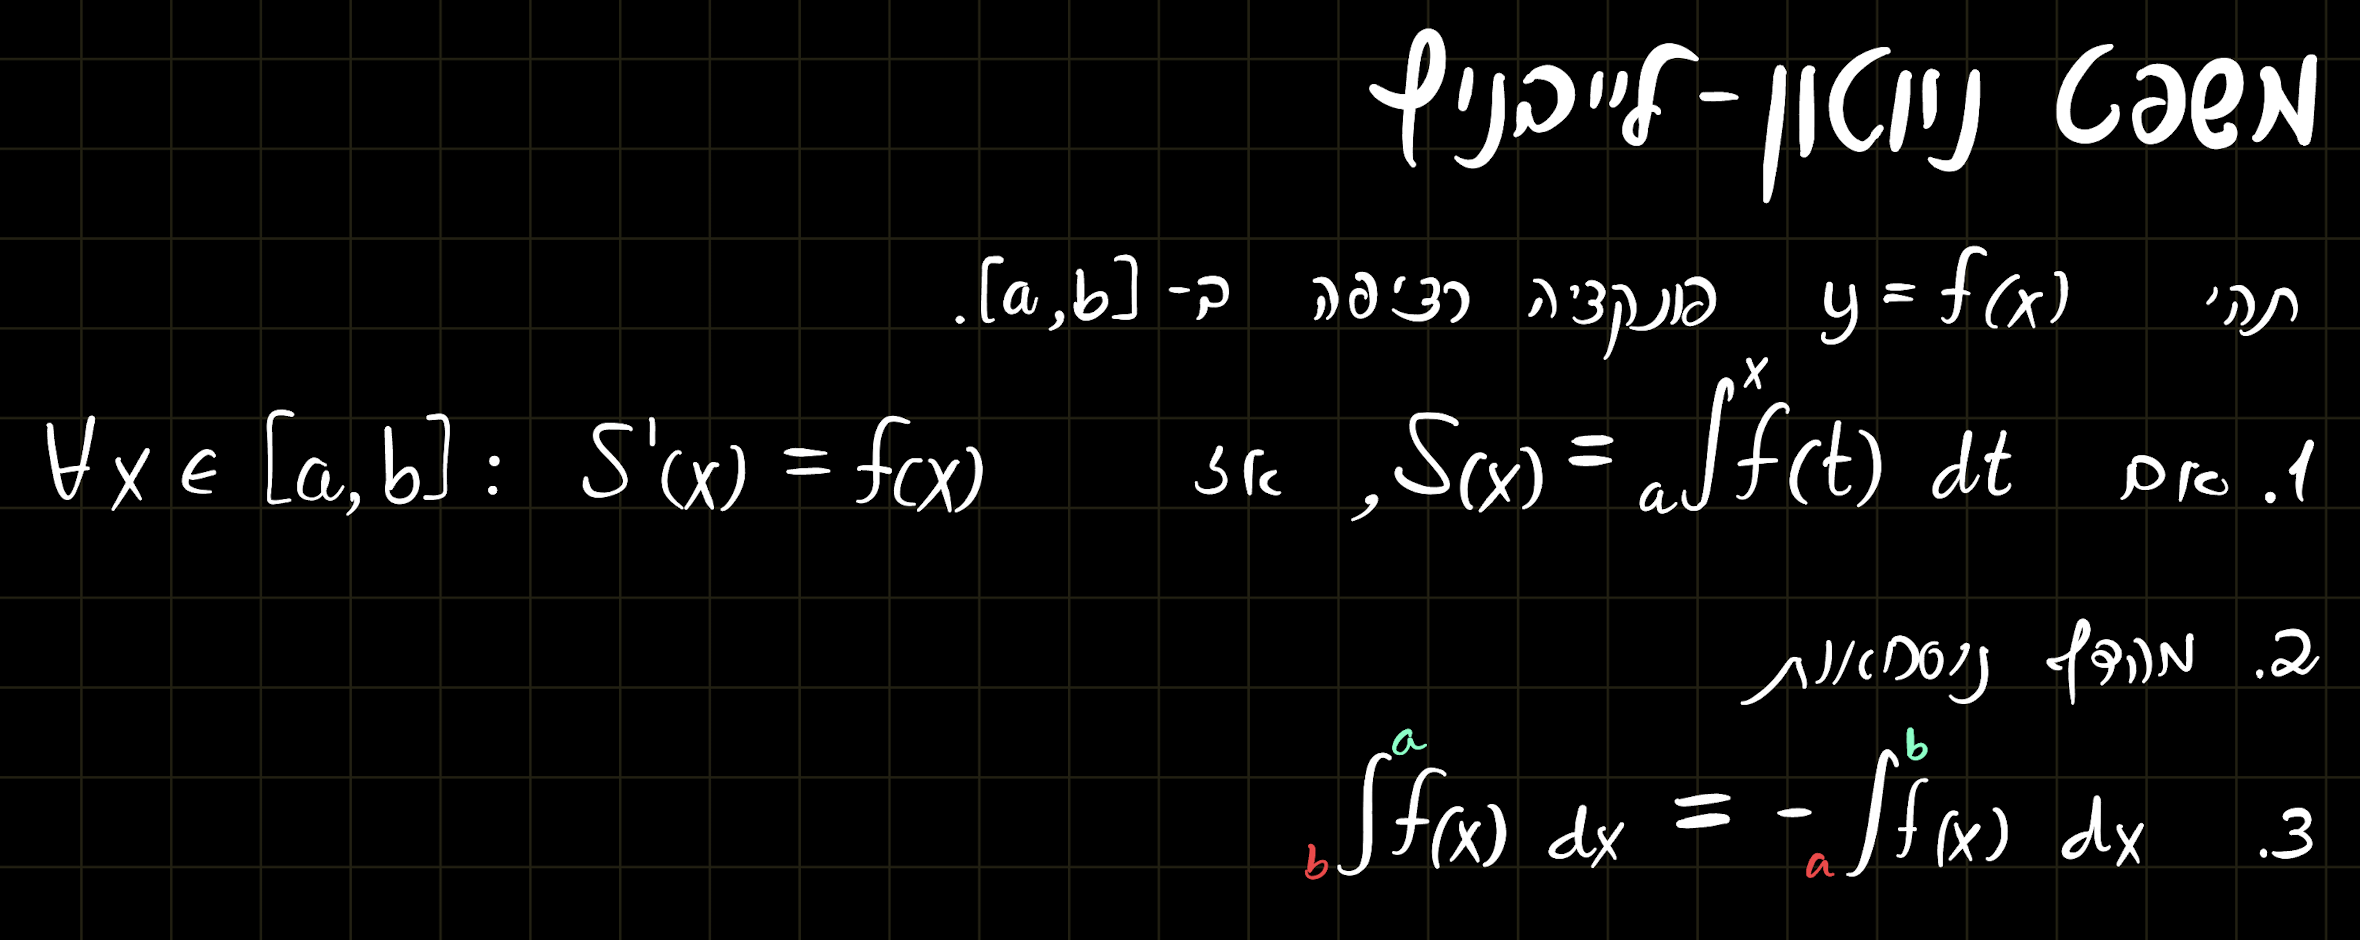 משפט ניוטון-לייבניץ
תהי y = f(x) פונקציה רציפה ב- [a,b].
1. אם S(x) = ₐ∫ˣ f(t) dt, אז ∀x ∈ [a,b]: S'(x) = f(x)
2. מהדף נוסחאות
3. b∫ᵃ f(x) dx = - ₐ∫ᵇ f(x) dx